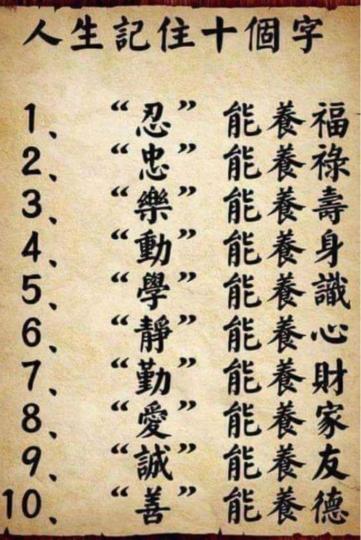 人生記住十個字
1、 “忍” 能養福
2、 “忠” 能養祿
3、 “樂” 能養壽
4、 “動” 能養身
5、 “學” 能養識
6、 “靜” 能養心
7、 “勤” 能養財
8、 “愛” 能養家
9、 “誠” 能養友
10、 “善” 能養德